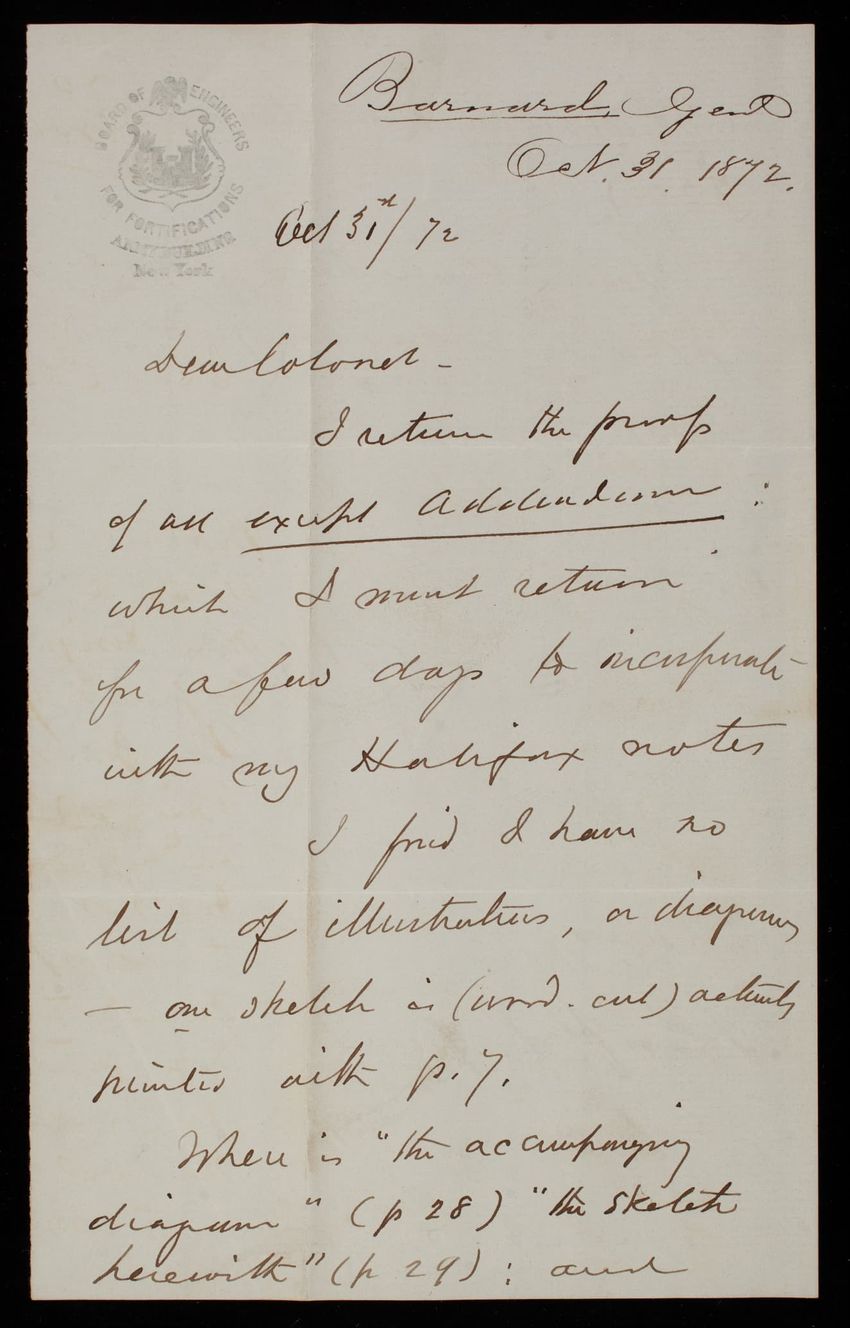 BOARD OF ENGINEERS
FOR FORTIFICATIONS
ARMY BUILDING
New York
Barnard, Genl
Oct. 31. 1872.
Oct 31st/72
Dear Colonel -
I return the proofs
of all except Addendum :
which I must return
for a few days to incorporate
with my Halifax notes
I find I have no
list of illustrations, or diagrams
— one sketch is (wood-cut) actually
printed with p. 7.
Where is "the accompanying
diagram" (p 28) "the sketch
herewith" (p 29) : and